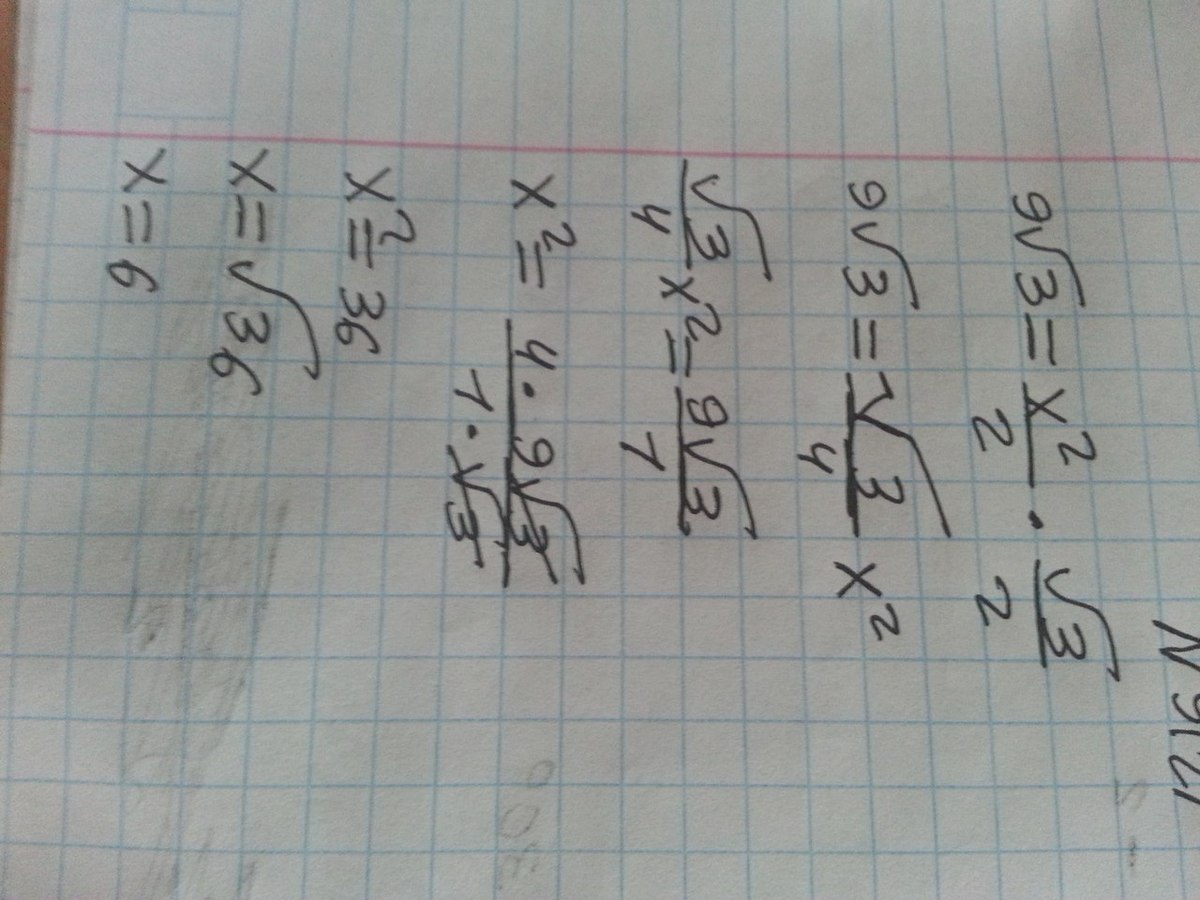 N 9(2)
9√3 = x²/2 · √3/2
9√3 = √3/4 x²
√3/4 x² = 9√3/1
x² = 4·9√3/1·√3
x² = 36
x = √36
x = 6